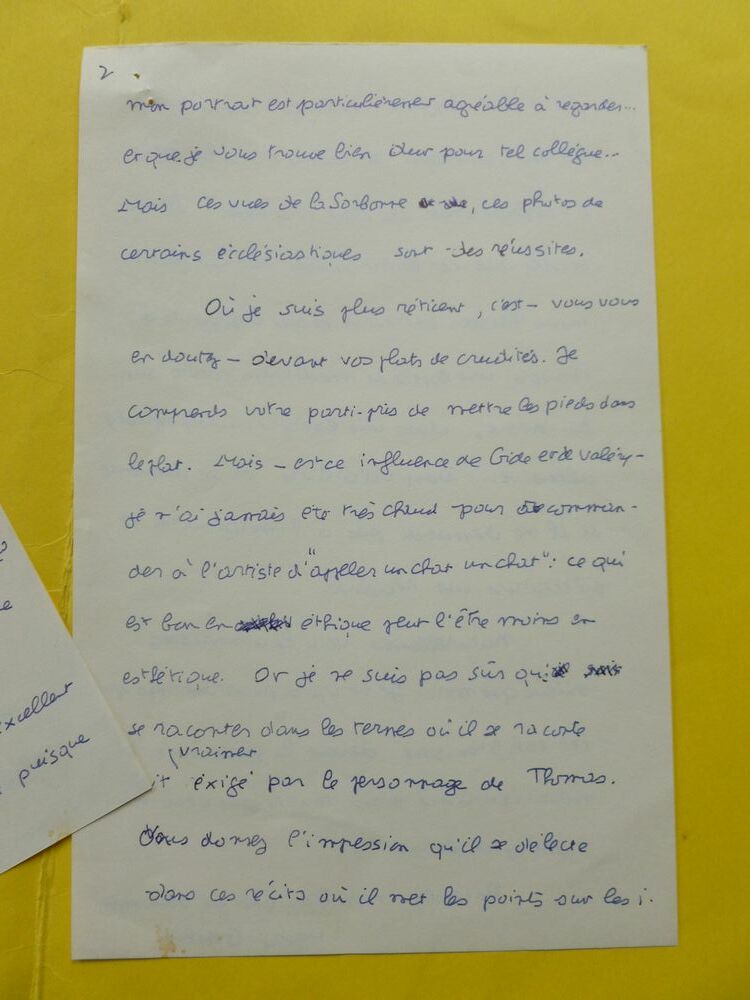 2
mon portrait est particulièrement agréable à regarder...
et que je vous trouve bien dur pour tel collègue...
Mais ces vues de la Sorbonne, ces photos de
certains écclésiastiques sont des réussites.
Où je suis plus réticent, c'est – vous vous
en doutez – devant vos plats de crudités. Je
comprends votre parti-pris de mettre les pieds dans
le plat. Mais – est ce influence de Gide et de Valéry –
je n'ai jamais été très chaud pour recomman-
der à l'artiste d'"appeler un chat un chat": ce qui
est bon en éthique peut l'être moins en
esthétique. Or je ne suis pas sûr que
se raconter dans les termes où il se raconte
vraiment
it éxigé par le personnage de Thomas.
Vous donnez l'impression qu'il se délecte
dans ces récits où il met les points sur les i.
e
excellent
puisque